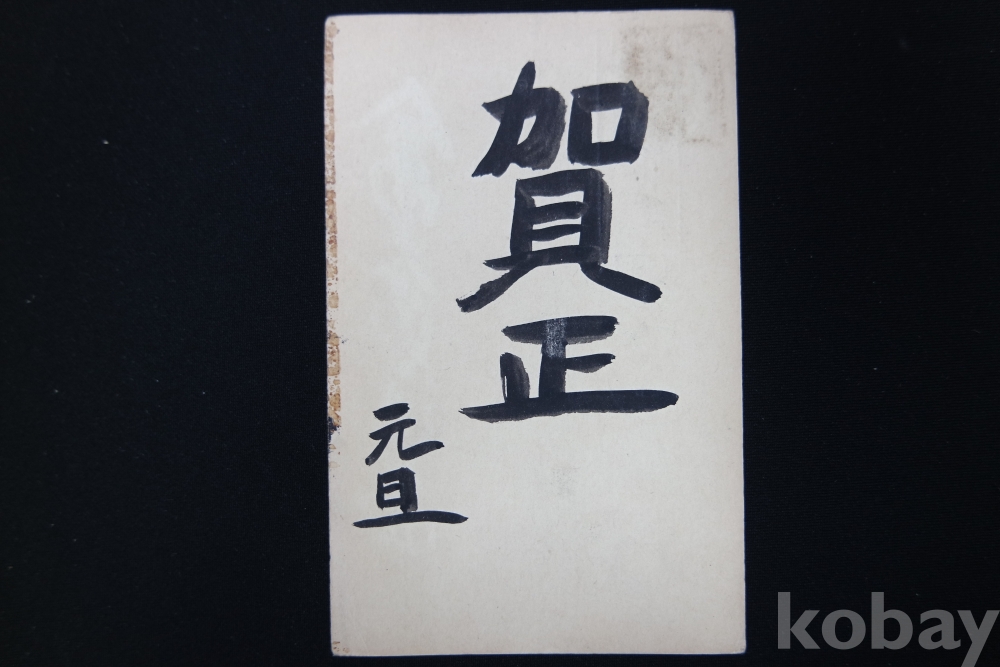 賀正
元旦
kobay